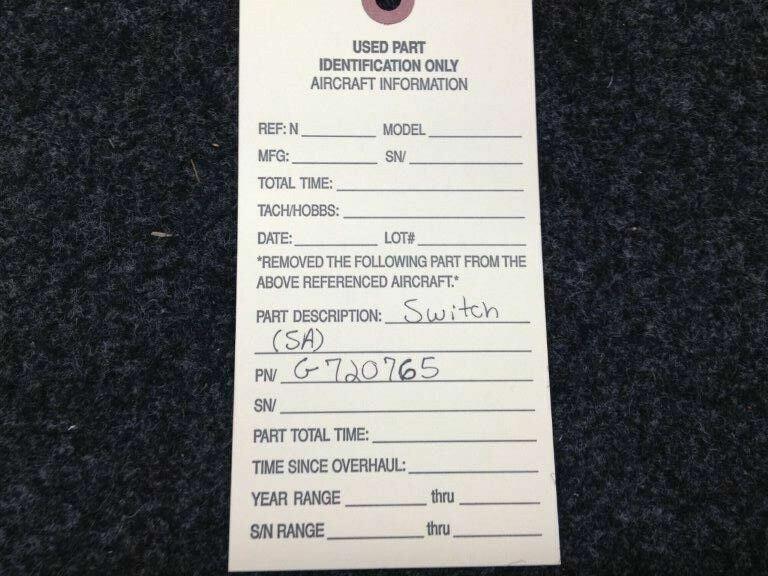 USED PART
IDENTIFICATION ONLY
AIRCRAFT INFORMATION
REF: N MODEL
MFG: SN/
TOTAL TIME:
TACH/HOBBS:
DATE: LOT#
*REMOVED THE FOLLOWING PART FROM THE
ABOVE REFERENCED AIRCRAFT.*
PART DESCRIPTION: Switch
(SA)
PN/ G720765
SN/
PART TOTAL TIME:
TIME SINCE OVERHAUL:
YEAR RANGE thru
S/N RANGE thru